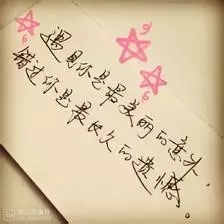 遇见你是最美丽的意外
错过你是最长久的遗憾。